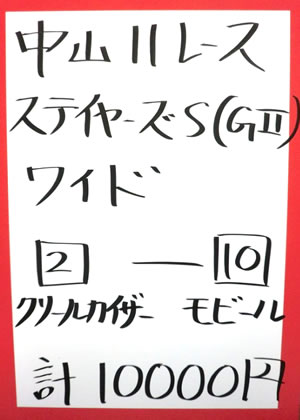 中山11レース
ステイヤーズS(GII)
ワイド
2 ― 10
クリールカイザー モビール
計10000円